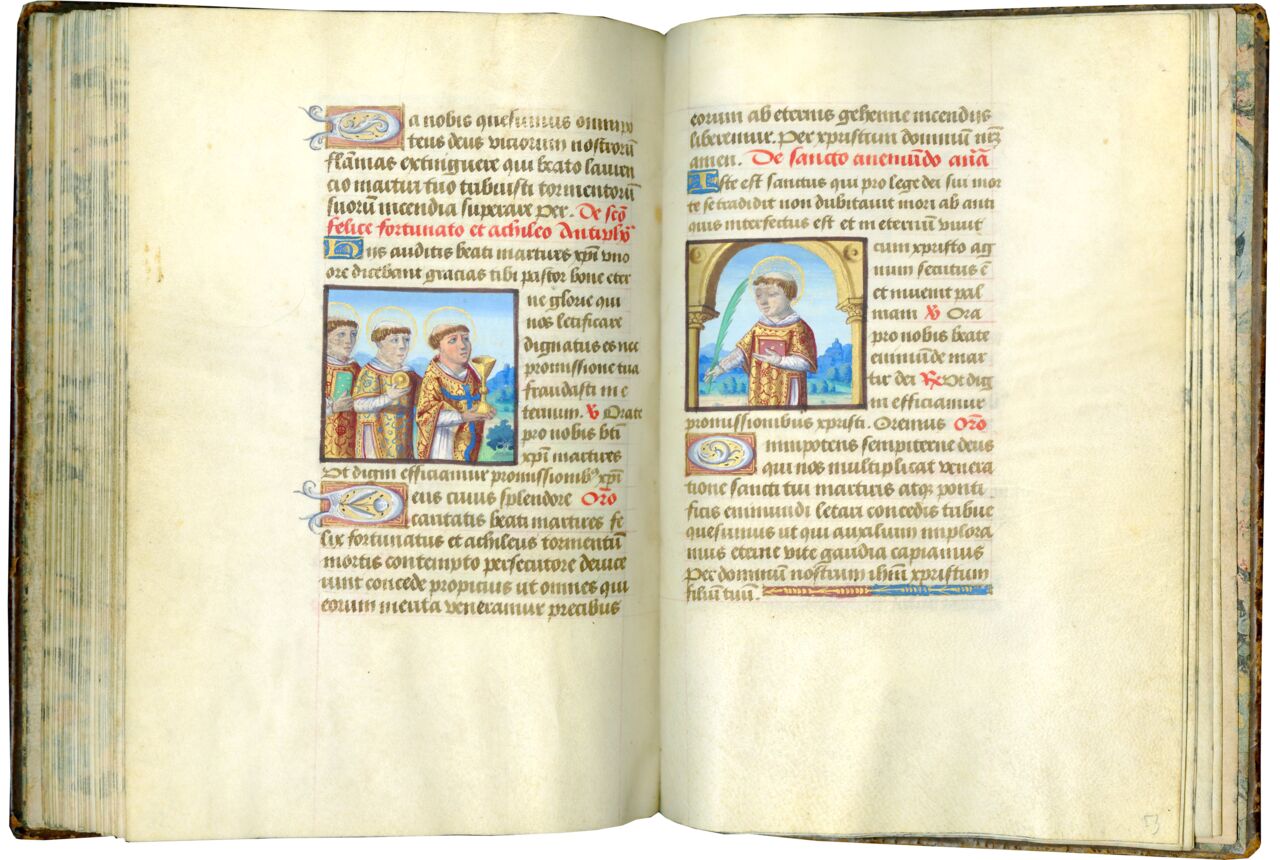 Da nobis quesumus omnipo
tens deus viciorum nostrorū
flāmas extinguere qui beato lauren
cio martiri tuo tribuisti tormentorū
suorū incendia superare per. De scō
felice fortunato et achileo Antiph̄
His auditis beati martires xp̄i vno
ore dicebant gracias tibi pastor bone eter
ne glorie qui
nos letificare
dignatus es nec
promissione tua
fraudasti in e
ternum. ℣ Orate
pro nobis bt̄i
xp̄i martires
Vt digni efficiamur promissionib⁹ xp̄i
Deus cuius splendore Orō
caritatis beati martires fe
lix fortunatus et achileus tormentū
mortis contempto persecutore deuice
runt concede propicius ut omnes qui
eorum merita veneramur precibus
eorum ab eternis gehenne incendijs
liberemur. Per xpristum dominū nr̄m
amen. De sancto anemūdo an̄a
Iste est sanctus qui pro lege dei sui mor
te se tradidit non dubitauit mori ab anti
quis interfectus est et in eternū viuit
cum xpristo ag
num secutus ē
et inuenit pal
mam ℣ Ora
pro nobis beate
enimūde mar
tir dei ℟ Vt dig
ni efficiamur
promissionibus xpristi. Oremus Orō
Omnipotens sempiterne deus
qui nos multiplicat venera
tione sancti tui martiris atq̄ ponti
ficis enimundi letari concedis tribue
quesumus ut qui auxilium implora
mus eterne vite gaudia capiamus
Per dominū nostrum ihm̄ xpristum
filiū tuū.
53